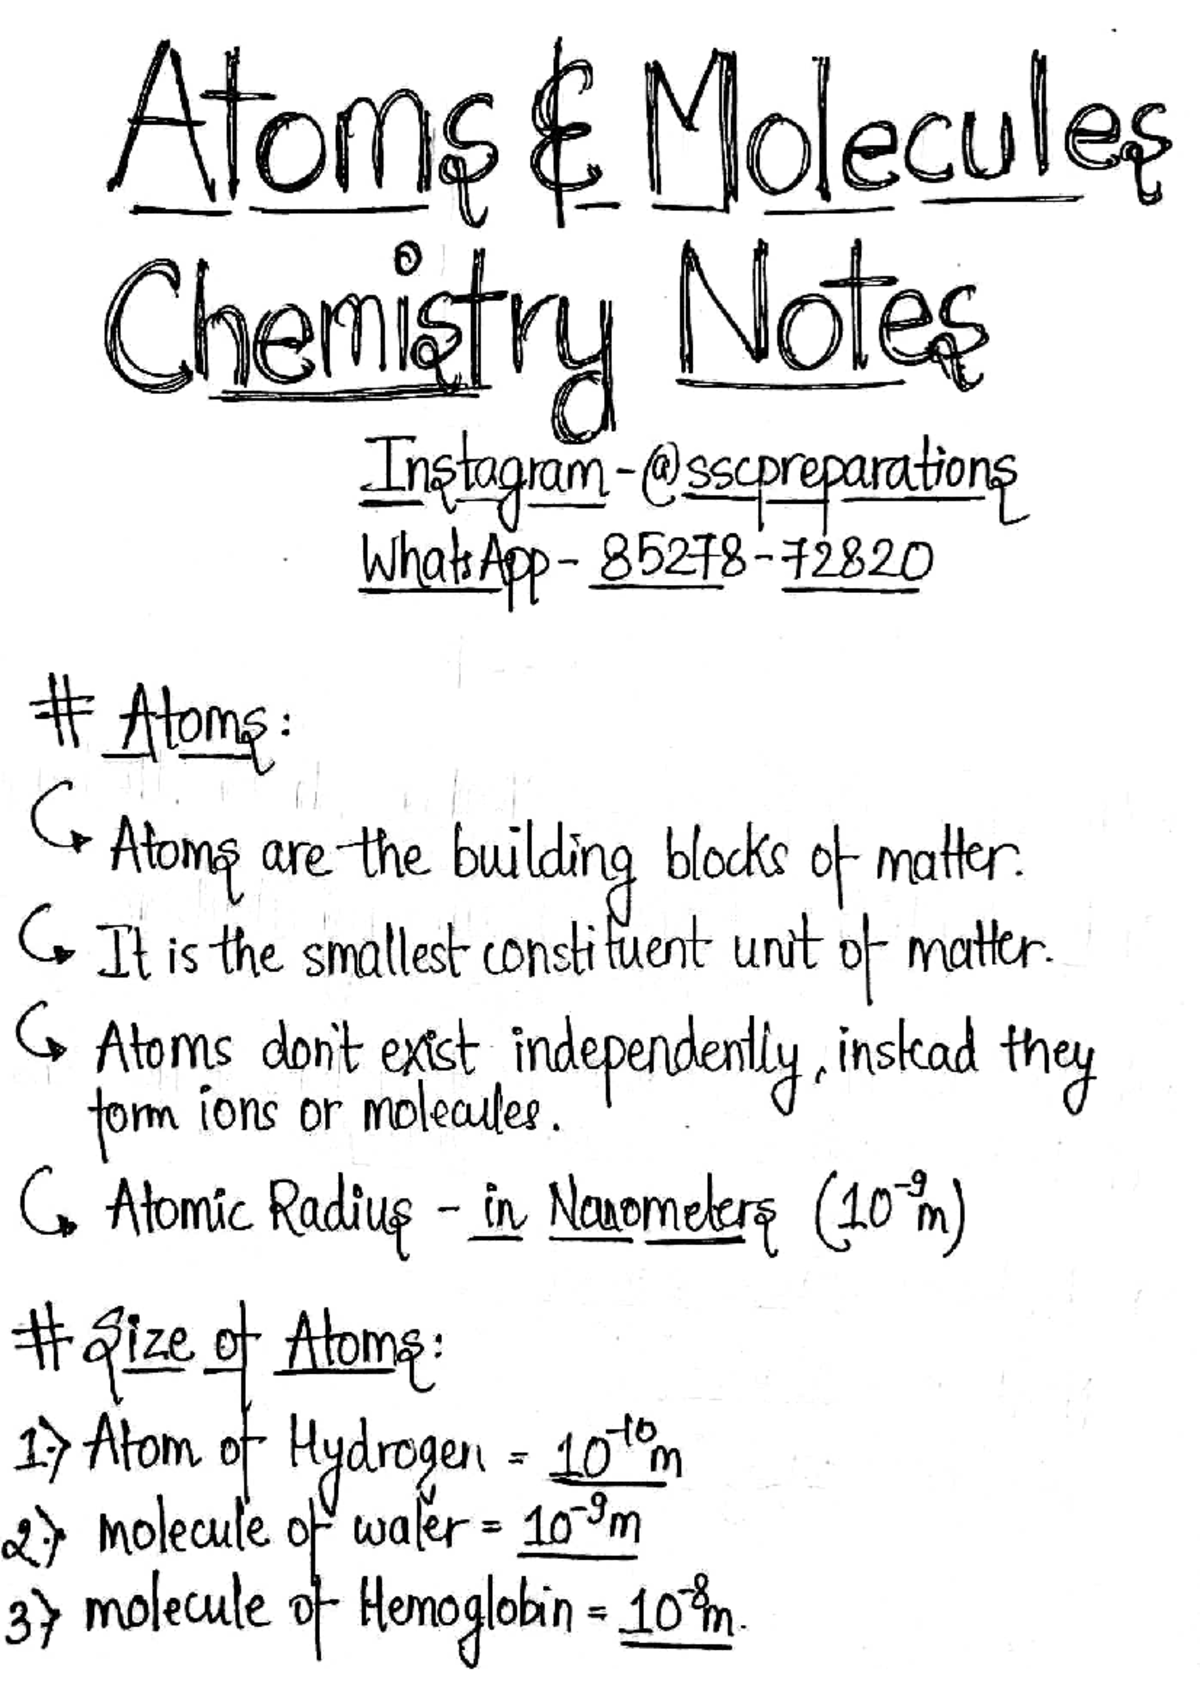 Atoms & Molecules
Chemistry Notes
Instagram - @sscpreparations
WhatsApp - 85278-72820
# Atoms:
↳ Atoms are the building blocks of matter.
↳ It is the smallest constituent unit of matter.
↳ Atoms don't exist independently, instead they
form ions or molecules.
↳ Atomic Radius - in Nanometers (10⁻⁹m)
# Size of Atoms:
1.) Atom of Hydrogen = 10⁻¹⁰m
2.) molecule of water = 10⁻⁹m
3.) molecule of Hemoglobin = 10⁻⁸m.